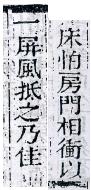 床怕房門相衝以
一屏風抵之乃佳